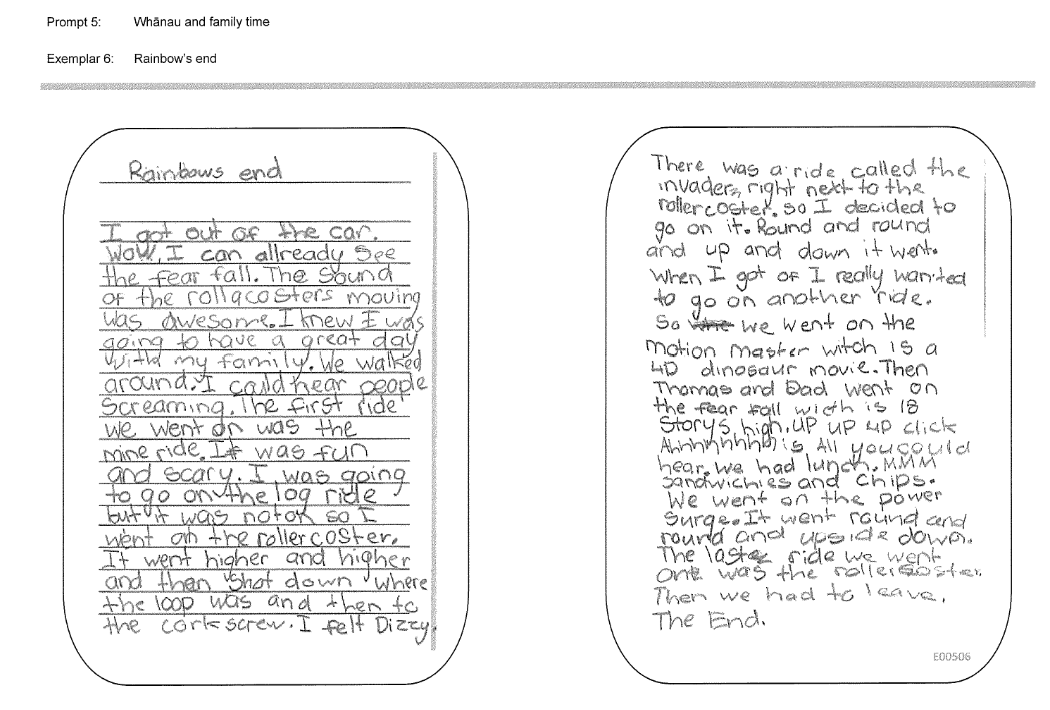 Prompt 5: Whānau and family time
Exemplar 6: Rainbow's end
Rainbows end
I got out of the car.
Wow. I can allready see
the fear fall. The sound
of the rollacosters moving
was awesome. I knew I was
going to have a great day
with my family. We walked
around. I could hear people
screaming. The first ride
we went on was the
mine ride. It was fun
and scary. I was going
to go on the log ride
but it was not on so I
went on the rollercoster.
It went higher and higher
and then shot down where
the loop was and then to
the cork screw. I felt Dizzy.
There was a ride called the
invader, right next to the
rollercoster. so I decided to
go on it. Round and round
and up and down it went.
when I got of I really wanted
to go on another ride.
So we went on the
motion master witch is a
4D dinosaur movie. Then
Thomas and Dad went on
the fear fall wich is 18
Storys high. UP UP UP click
Ahhhhhhhh is All you could
hear. We had lunch. MMM
sandwichies and chips.
We went on the power
surge. It went round and
round and upside down.
The last ride we went
one was the rollercoster.
Then we had to leave.
The End.
E00506